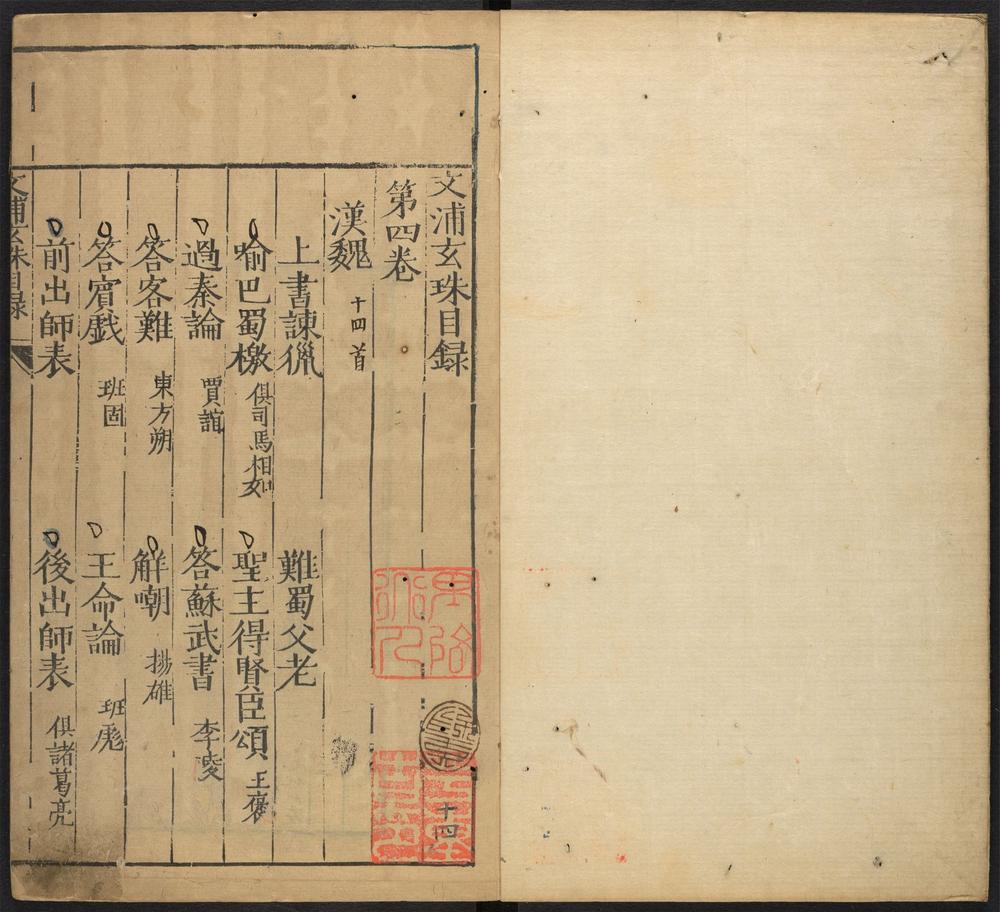 文浦玄珠目録
第四卷
漢魏 十四首
上書諫獵 難蜀父老
喻巴蜀檄 俱司馬相如 聖主得賢臣頌 王褒
過秦論 賈誼 答蘇武書 李陵
答客難 東方朔 解嘲 揚雄
答賓戯 班固 王命論 班彪
前出師表 後出師表 俱諸葛亮
文浦玄珠目録
十四